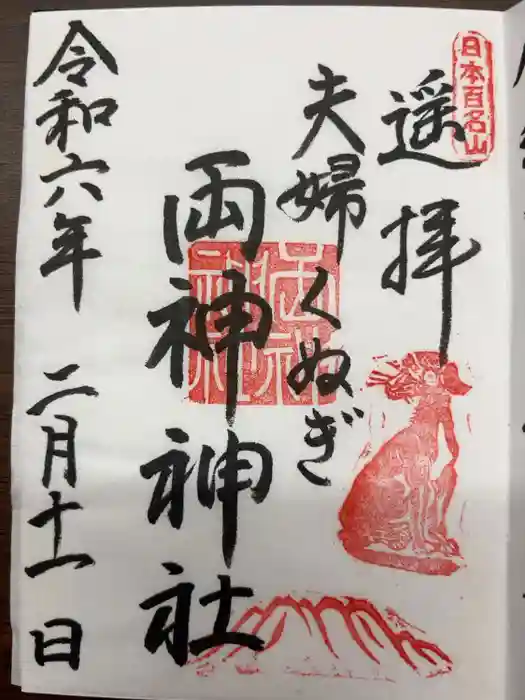 日本百名山
遥拝
夫婦くぬぎ
両神神社
令和六年 二月十一日